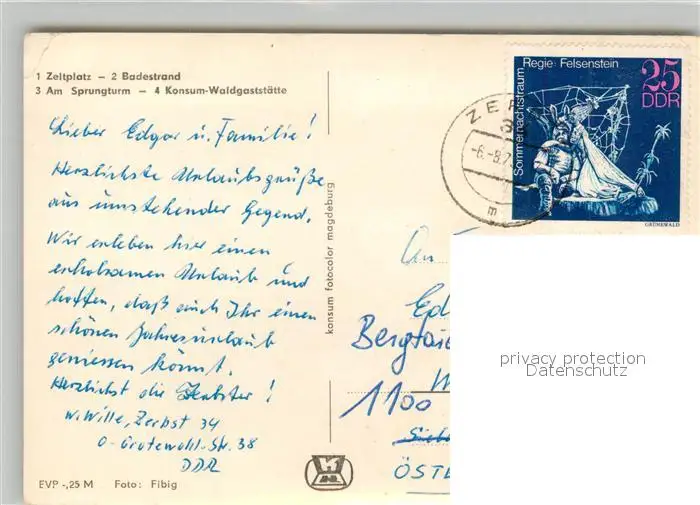 1 Zeltplatz – 2 Badestrand
3 Am Sprungturm – 4 Konsum-Waldgaststätte
Lieber Edgar u. Familie!
Herzlichste Urlaubsgrüße
aus umstehender Gegend.
Wir erleben hier einen
erholsamen Urlaub und
hoffen, daß auch Ihr einen
schönen Jahresurlaub
geniessen könnt.
Herzlichst die Zerbster!
W. Wille, Zerbst 34
O-Grotewohl-Str. 38
DDR
EVP -,25 M Foto: Fibig
konsum fotocolor magdeburg
ZER
-6.-8.7
m
Sommernachtstraum
Regie: Felsenstein
25
DDR
GRÜNEWALD
An
Ed
1100
ÖST
privacy protection
Datenschutz